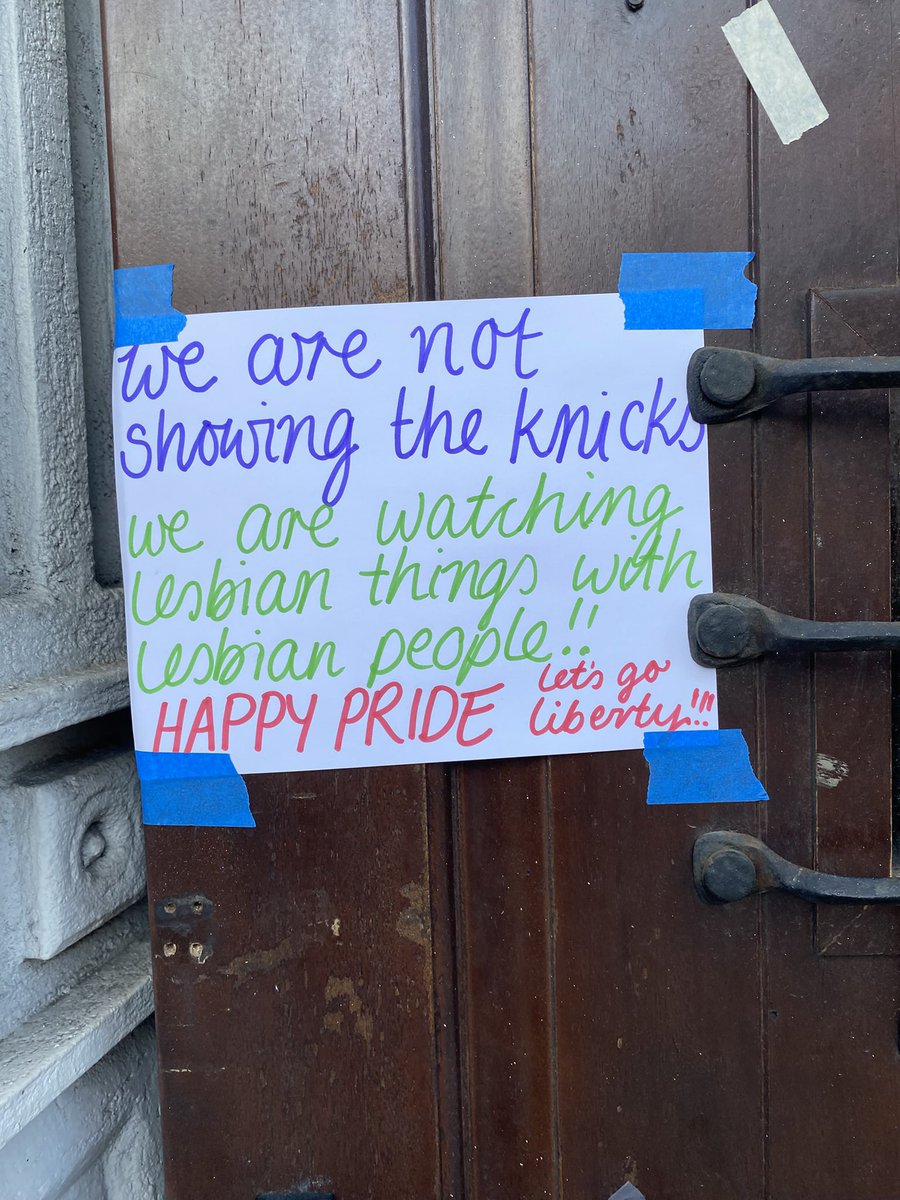 we are not
showing the knicks
we are watching
lesbian things with
lesbian people!!
HAPPY PRIDE let's go
liberty!!!